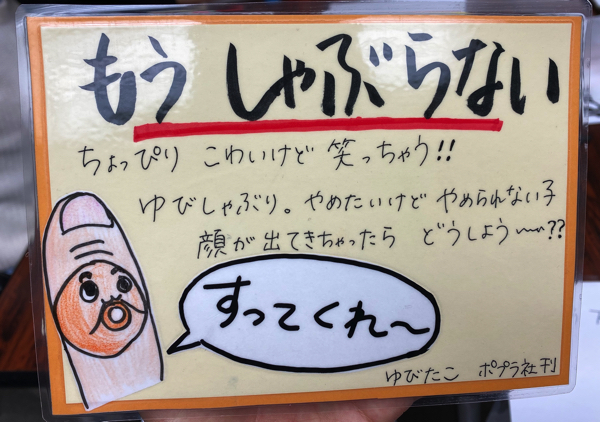 もうしゃぶらない
ちょっぴり こわいけど 笑っちゃう!!
ゆびしゃぶり。やめたいけど やめられない子
顔が出てきちゃったら どうしよう〜??
すってくれ〜
ゆびたこ ポプラ社刊